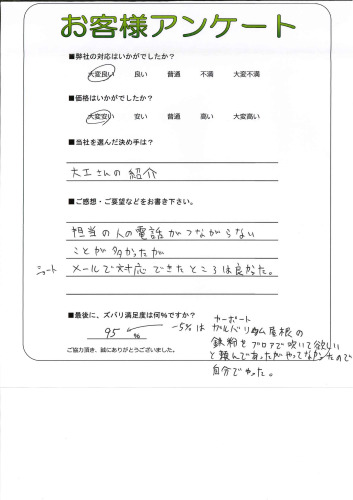 お客様アンケート
■弊社の対応はいかがでしたか？
大変良い 良い 普通 不満 大変不満
■価格はいかがでしたか？
大変安い 安い 普通 高い 大変高い
■当社を選んだ決め手は？
大工さんの紹介
■ご感想・ご要望などをお書き下さい。
担当の人の電話がつながらない
ことが多かったが
ショート
メールで対応できたところは良かった。
■最後に、ズバリ満足度は何%ですか？
95 %
-5%は カーポート
ガルバリウム屋根の
鉄粉をブロアで吹いて欲しい
と頼んであったがやってなかったので
自分でやった。
ご協力頂き、誠にありがとうございました。